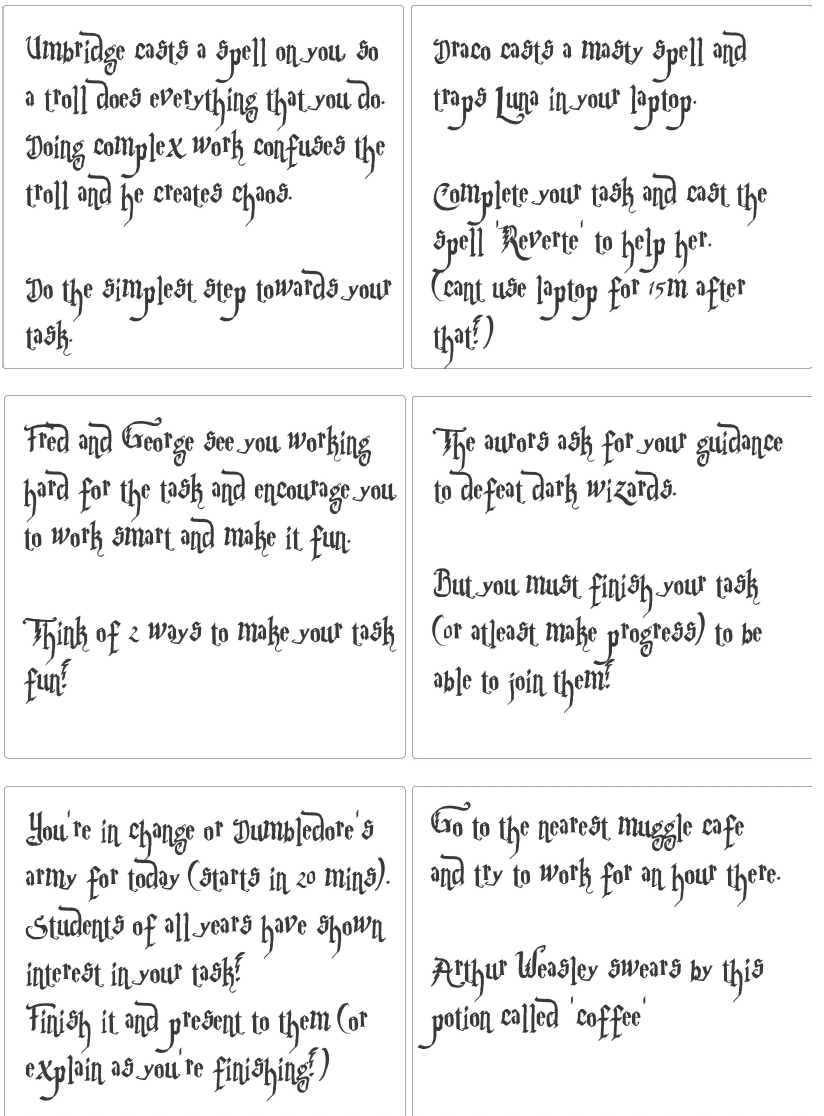 Umbridge casts a spell on you so
a troll does everything that you do.
Doing complex work confuses the
troll and he creates chaos.
Do the simplest step towards your
task.
Draco casts a masty spell and
traps Luna in your laptop.
Complete your task and cast the
spell 'Reverte' to help her.
(cant use laptop for 15m after
that!)
Fred and George see you working
hard for the task and encourage you
to work smart and make it fun.
Think of 2 ways to make your task
fun!
The aurors ask for your guidance
to defeat dark wizards.
But you must finish your task
(or atleast make progress) to be
able to join them!
You're in change or Dumbledore's
army for today (starts in 20 mins).
Students of all years have shown
interest in your task!
Finish it and present to them (or
explain as you're finishing!)
Go to the nearest muggle cafe
and try to work for an hour there.
Arthur Weasley swears by this
potion called 'coffee'